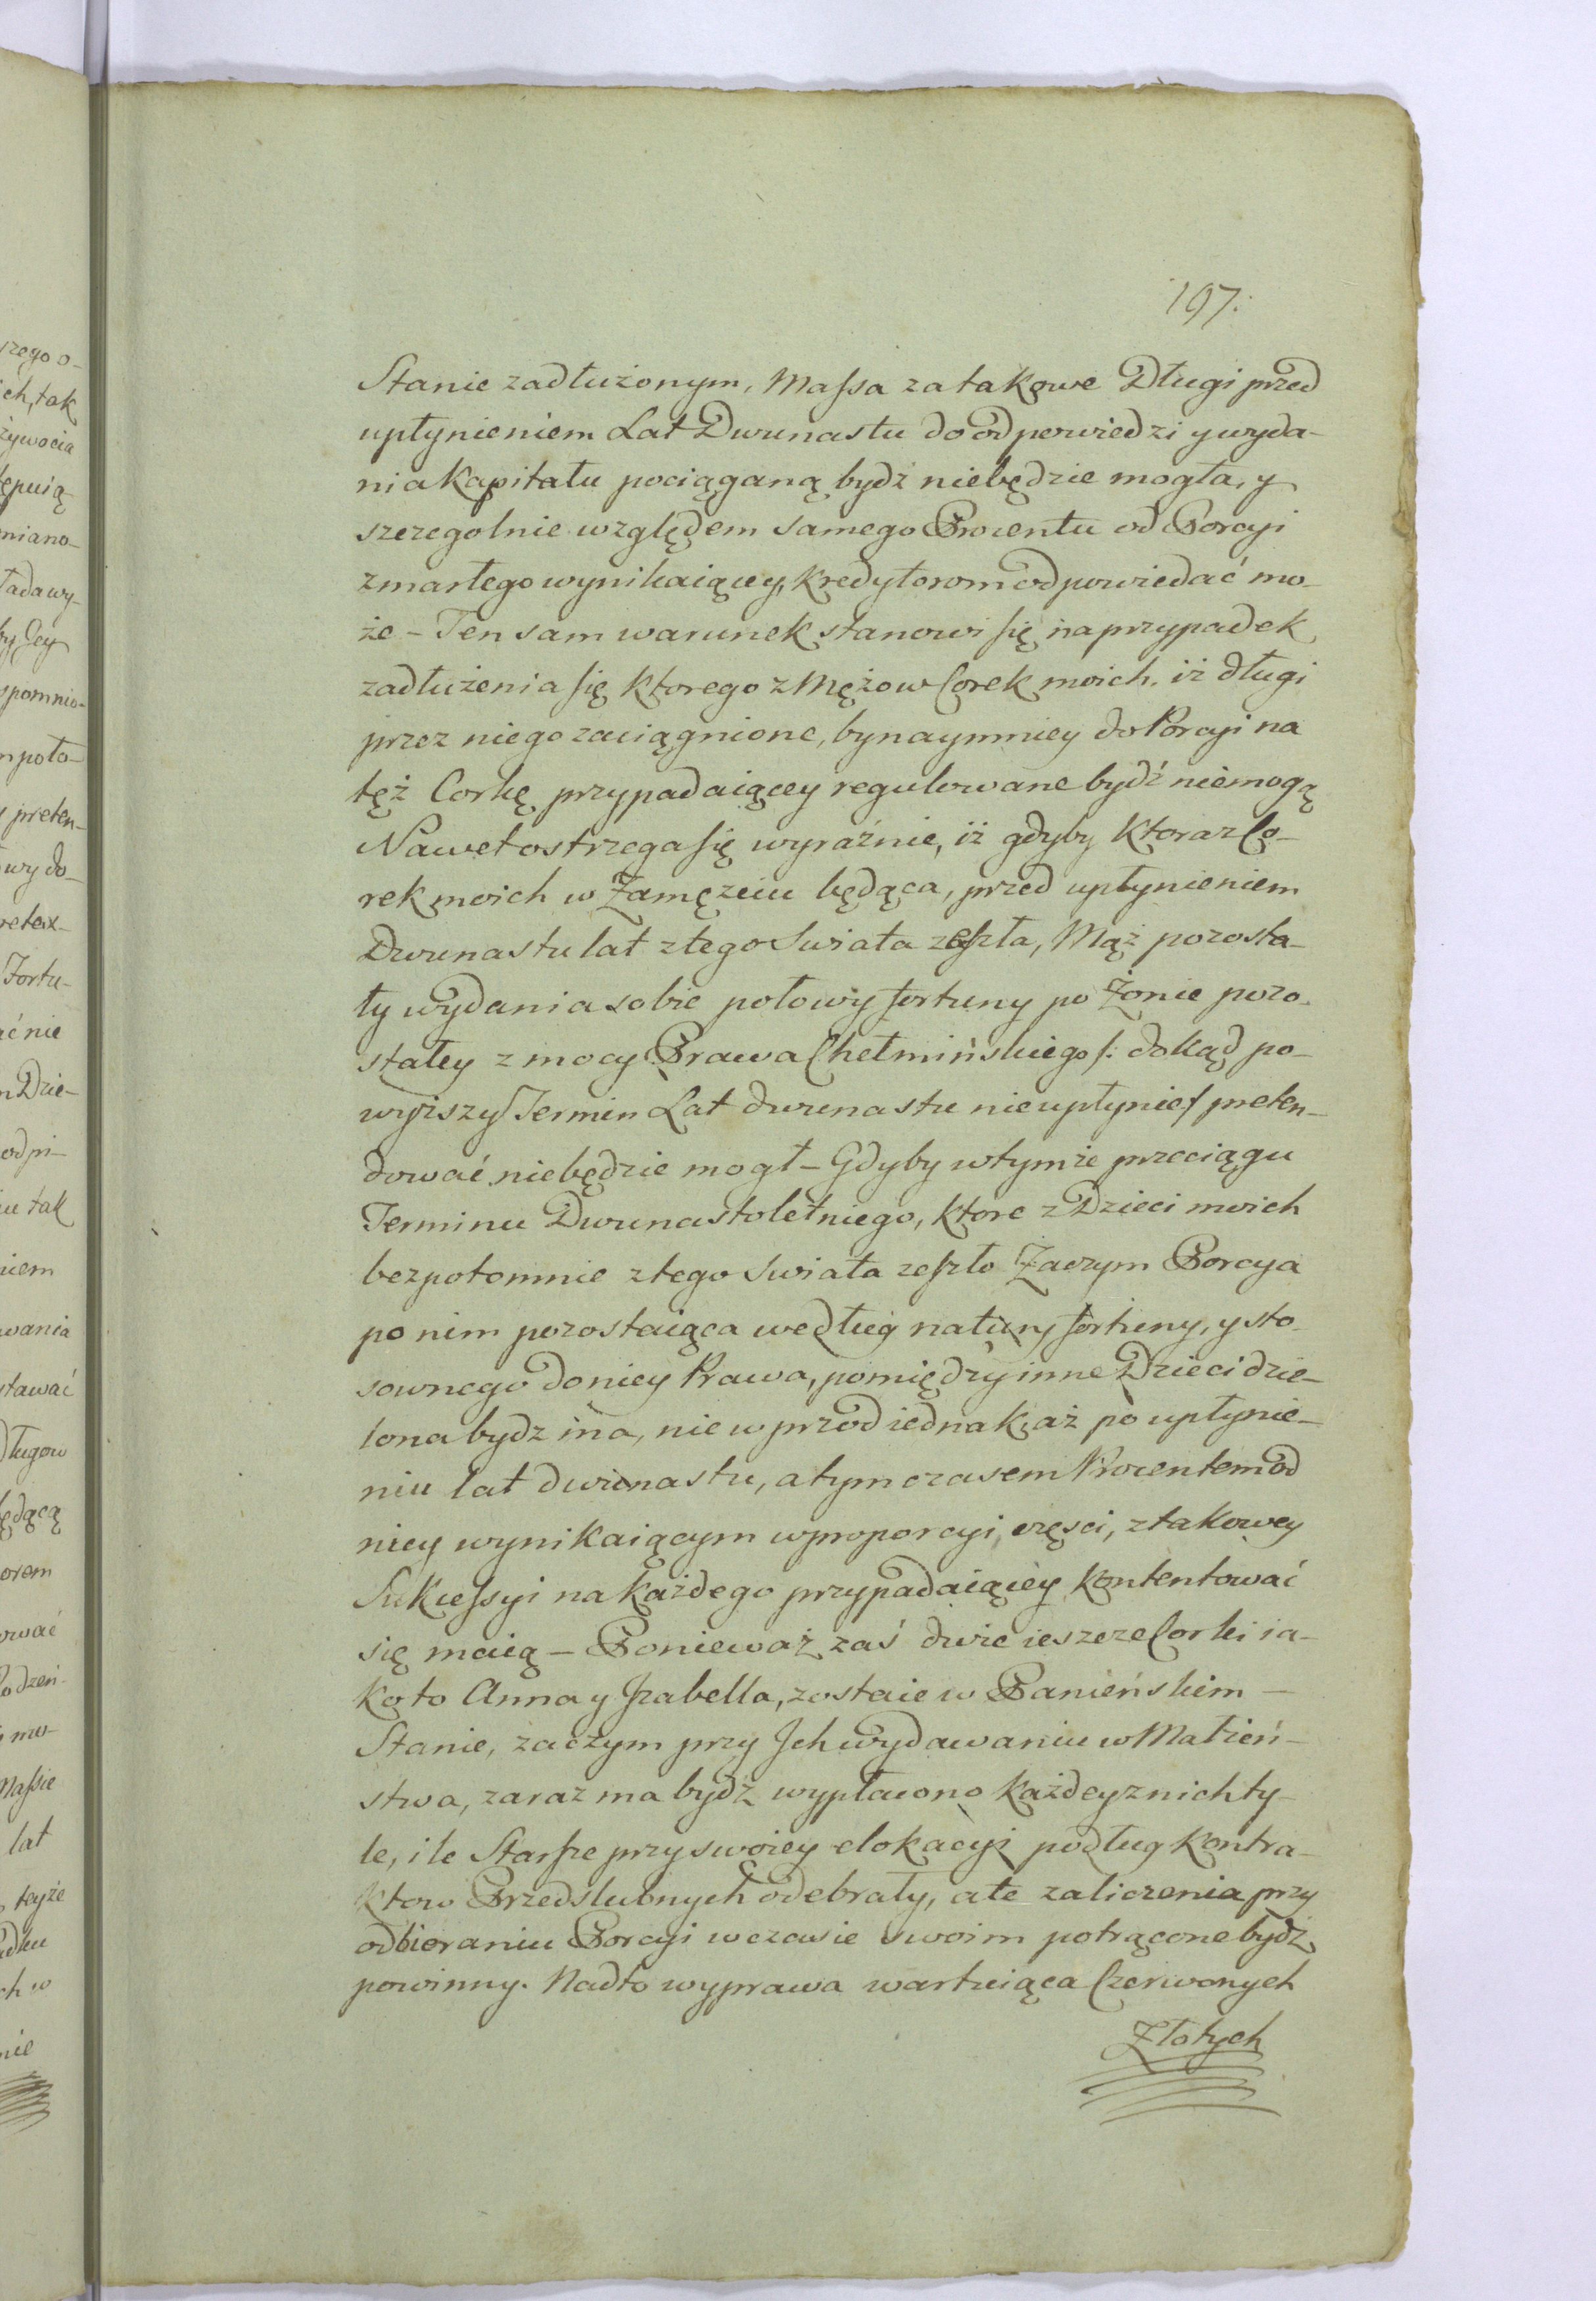 197.
Stanie zadłużonym, Massa za takowe Długi przed
upłynieniem Lat Dwunastu do odpowiedzi y wyda-
nia Kapitału pociąganą bydź niebędzie mogła, y
szczegolnie względem samego Procentu od Porcyi
zmarłego wynikaiącey, kredytorom odpowiedać mo-
że - Ten sam warunek stanowi się na przypadek
zadłużenia się ktorego z Mężow Corek moich, iż długi
przez niego zaciągnione, bynaymniey do Porcyi na
tęż Corkę przypadaiącey regulowane bydź niemogą
Nawet ostrzega się wyraźnie, iż gdyby ktora z Co-
rek moich w Zamęzciu będąca, przed upłynieniem
Dwunastu lat z tego Swiata zeszła, Mąż pozosta-
ły wydania sobie połowy fortuny po Żonie pozo-
stałey z mocy Prawa Chełmińskiego /: dokąd po-
wyższy Termin Lat dwunastu nieupłynie/ preten-
dować niebędzie mogł - Gdyby wtymże przeciągu
Terminu Dwunastoletniego, ktore z Dzieci moich
bezpotomnie z tego Swiata zeszło Zaczym Porcya
po nim pozostaiąca według natury fortuny, y sto-
sownego do niey Prawa, pomiędzy inne Dzieci dzie-
lona bydz ma, nie wprzod iednak, aż po upłynie-
niu lat dwunastu, a tym czasem Procentem od
niey wynikaiącym w proporcyi, częsci, z takowey
Sukcessyi na każdego przypadaiącey kontentować
się maią - Ponieważ zaś dwie ieszcze Corki ia-
ko to Anna y Izabella, zostaie w Panieńskim -
Stanie, zaczym przy Jch wydawaniu w Małżeń-
stwa, zaraz ma bydź wypłacono każdey z nich ty-
le, ile Starsze przy swoiey elokacyi podług Kontra-
ktow Przedslubnych odebrały, ale zaliczenia przy
odbieraniu Porcyi w czasie swoim potrącone bydź
powinny. Nadto wyprawa wartuiąca Czerwonych
Złotych
rzego o-
ch, tak
żywocia
tępuią
miano-
by Jey
spomnio-
preten-
wy do-
Fortu-
ać nie
Dzie-
iu tak
niem
wania
stawać
Długow
będącą
orem
Massie
lat
teyże
ch w
nie